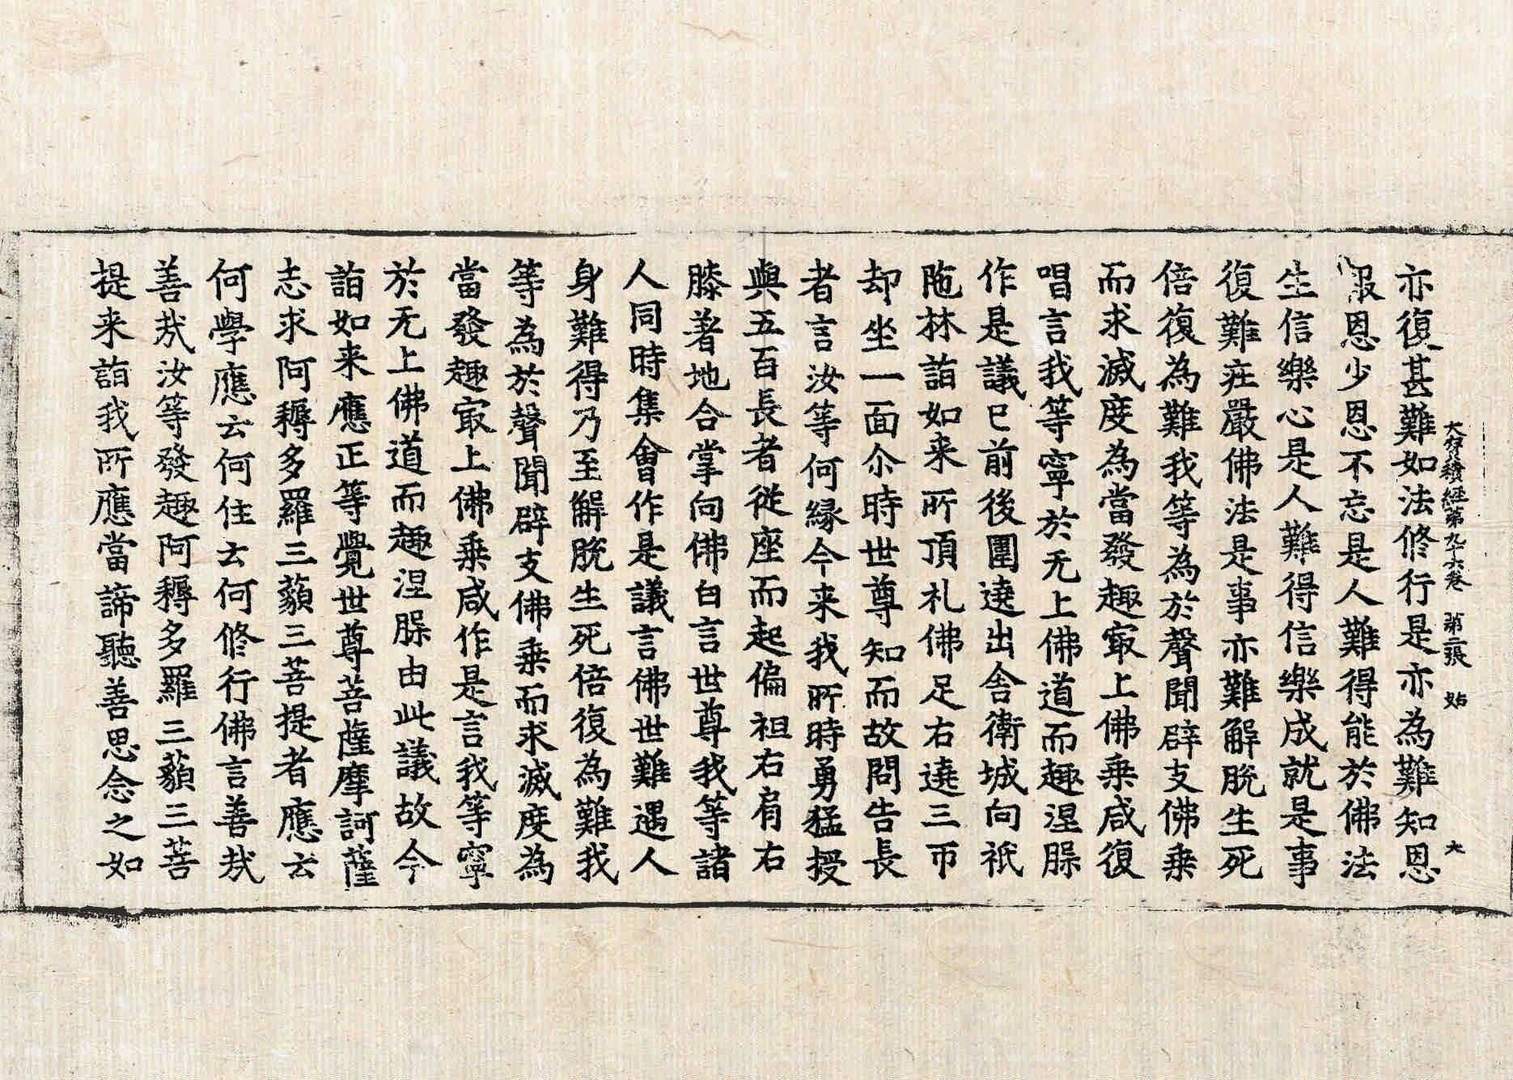 大寶積經第九十六卷 第二張 始 大
亦復甚難如法修行是亦為難知恩
報恩少恩不忘是人難得能於佛法
生信樂心是人難得信樂成就是事
復難莊嚴佛法是事亦難解脫生死
倍復為難我等為於聲聞辟支佛乘
而求滅度為當發趣㝡上佛乘咸復
唱言我等寧於无上佛道而趣涅槃
作是議已前後圍遶出舍衛城向祇
陁林詣如来所頂礼佛足右遶三帀
却坐一面尒時世尊知而故問告長
者言汝等何緣今来我所時勇猛授
與五百長者從座而起偏袒右肩右
膝著地合掌向佛白言世尊我等諸
人同時集會作是議言佛世難遇人
身難得乃至解脫生死倍復為難我
等為於聲聞辟支佛乘而求滅度為
當發趣㝡上佛乘咸作是言我等寧
於无上佛道而趣涅槃由此議故今
詣如来應正等覺世尊菩薩摩訶薩
志求阿耨多羅三藐三菩提者應云
何學應云何住云何修行佛言善哉
善哉汝等發趣阿耨多羅三藐三菩
提来詣我所應當諦聽善思念之如